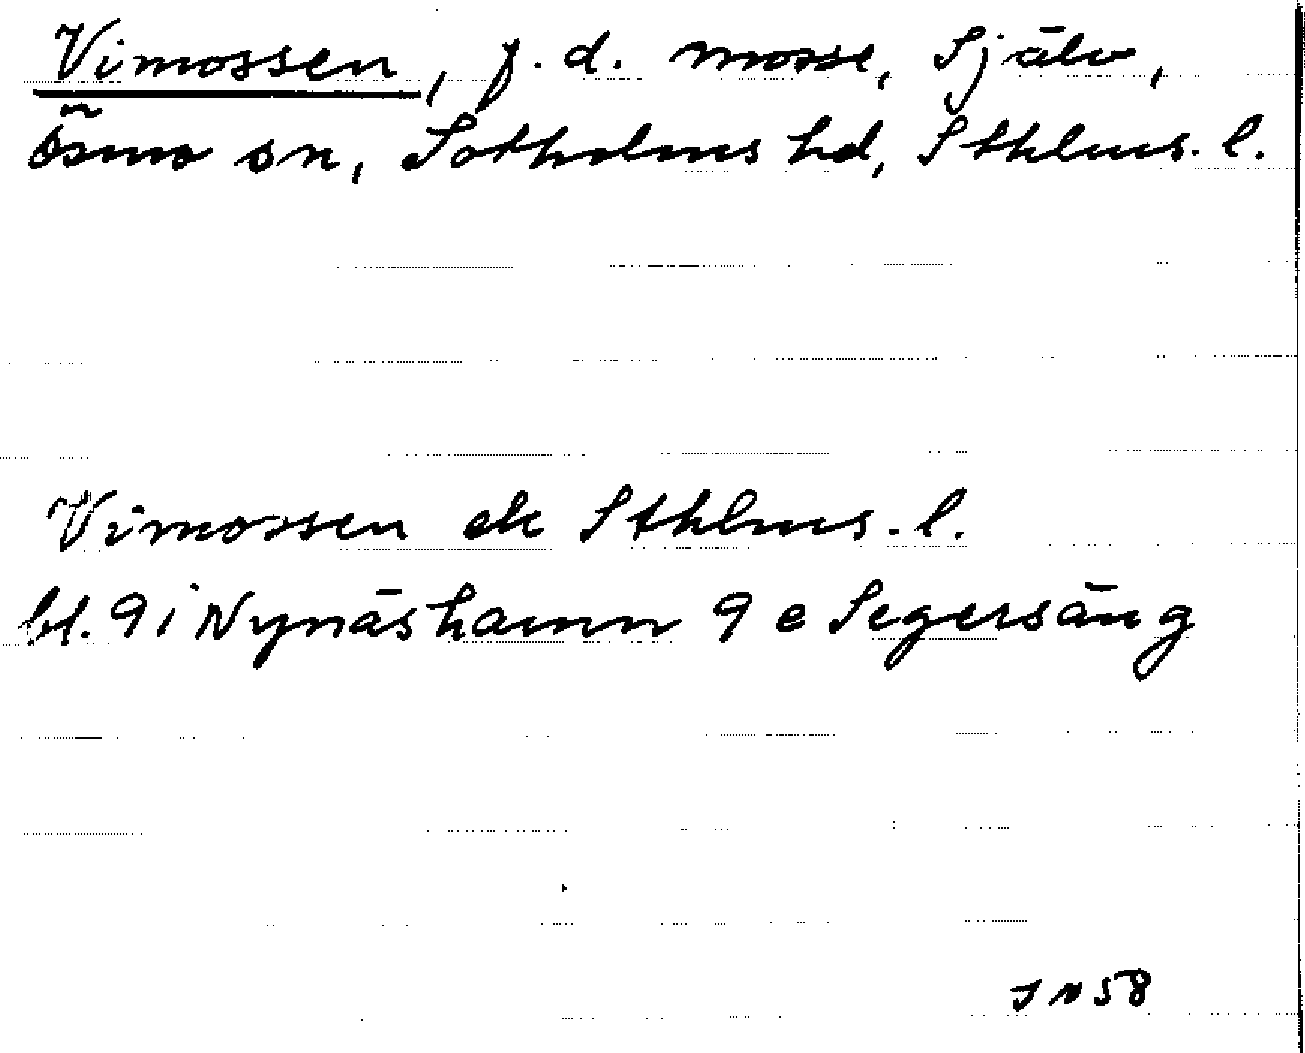 Vimossen, f.d. mosse, Själv,
Ösmo sn, Sotholms hd, Sthlms. l.
Vimossen ek Sthlms. l.
bl. 9 i Nynäshamn 9 e Segersäng
J N 58